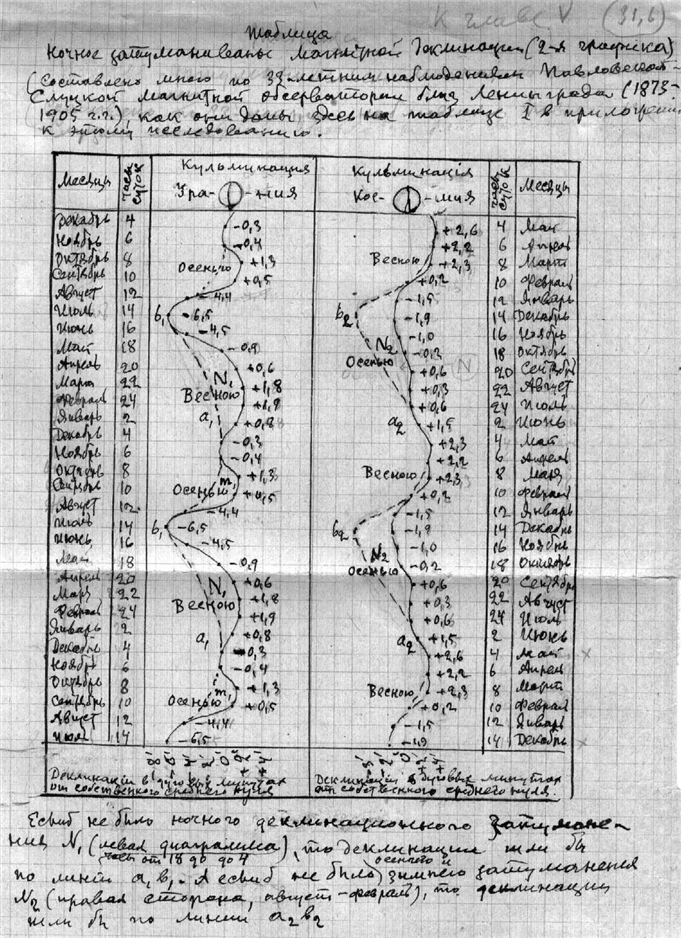 К главе V (31,6)
Таблица
Ночное затуманиванье магнитной деклинации (2-я графика)
(Составлено мною по 33-летним наблюдениям Павловской-
Слуцкой магнитной обсерватории близ Ленинграда (1873-
1905 г.г.), как они даны здесь на таблице I в приложении
к этому исследованию.
Месяцы Часы суток Кульминация Кульминація Часы суток Месяцы
Ура- -ния Кос- -мия
Декабрь 4 -0,3 +2,6 4 Май
Ноябрь 6 -0,4 +2,2 6 Апрель
Октябрь 8 Осенью +1,3 Весною +2,3 8 Март
Сентябрь 10 +0,5 +0,2 10 Февраль
Август 12 -4,4 -1,5 12 Январь
Июль 14 b₁ -6,5 b₂ -1,9 14 Декабрь
Июнь 16 -4,5 -1,0 16 Ноябрь
Май 18 -0,9 N₂ -0,2 18 Октябрь
Апрель 20 +0,6 Осенью +0,6 20 Сентябрь
Март 22 N₁ +1,8 +0,3 22 Август
Февраль 24 Весною +1,9 +0,6 24 Июль
Январь 2 a₁ +0,8 a₂ +1,5 2 Июнь
Декабрь 4 -0,3 +2,3 4 Май
Ноябрь 6 -0,4 +2,2 6 Апрель
Октябрь 8 m₁ +1,3 Весною +2,3 8 Март
Сентябрь 10 Осенью +0,5 +0,2 10 Февраль
Август 12 -4,4 -1,5 12 Январь
Июль 14 b₁ -6,5 b₂ -1,9 14 Декабрь
Июнь 16 -4,5 -1,0 16 Ноябрь
Май 18 -0,9 N₂ -0,2 18 Октябрь
Апрель 20 +0,6 Осенью +0,6 20 Сентябрь
Март 22 N₁ +1,8 +0,3 22 Август
Февраль 24 Весною +1,9 +0,6 24 Июль
Январь 2 a₁ +0,8 a₂ +1,5 2 Июнь
Декабрь 4 -0,3 +2,6 4 Май
Ноябрь 6 -0,4 +2,2 6 Апрель
Октябрь 8 m₁ +1,3 Весною +2,3 8 Март
Сентябрь 10 Осенью +0,5 +0,2 10 Февраль
Август 12 -4,4 -1,5 12 Январь
Июль 14 -6,5 -1,9 14 Декабрь
Деклинации в дуговых минутах Деклинации в дуговых минутах
от собственного среднего нуля от собственного среднего нуля.
Еслиб не было ночного деклинационного затумане-
ния N₁ (левая диаграмма), то деклинации шли бы
часы от 18 до 4 осеннего и
по линии a₁b₁. А еслиб не было зимнего затуманения
N₂ (правая сторона, август-февраль), то деклинации
шли бы по линии a₂b₂